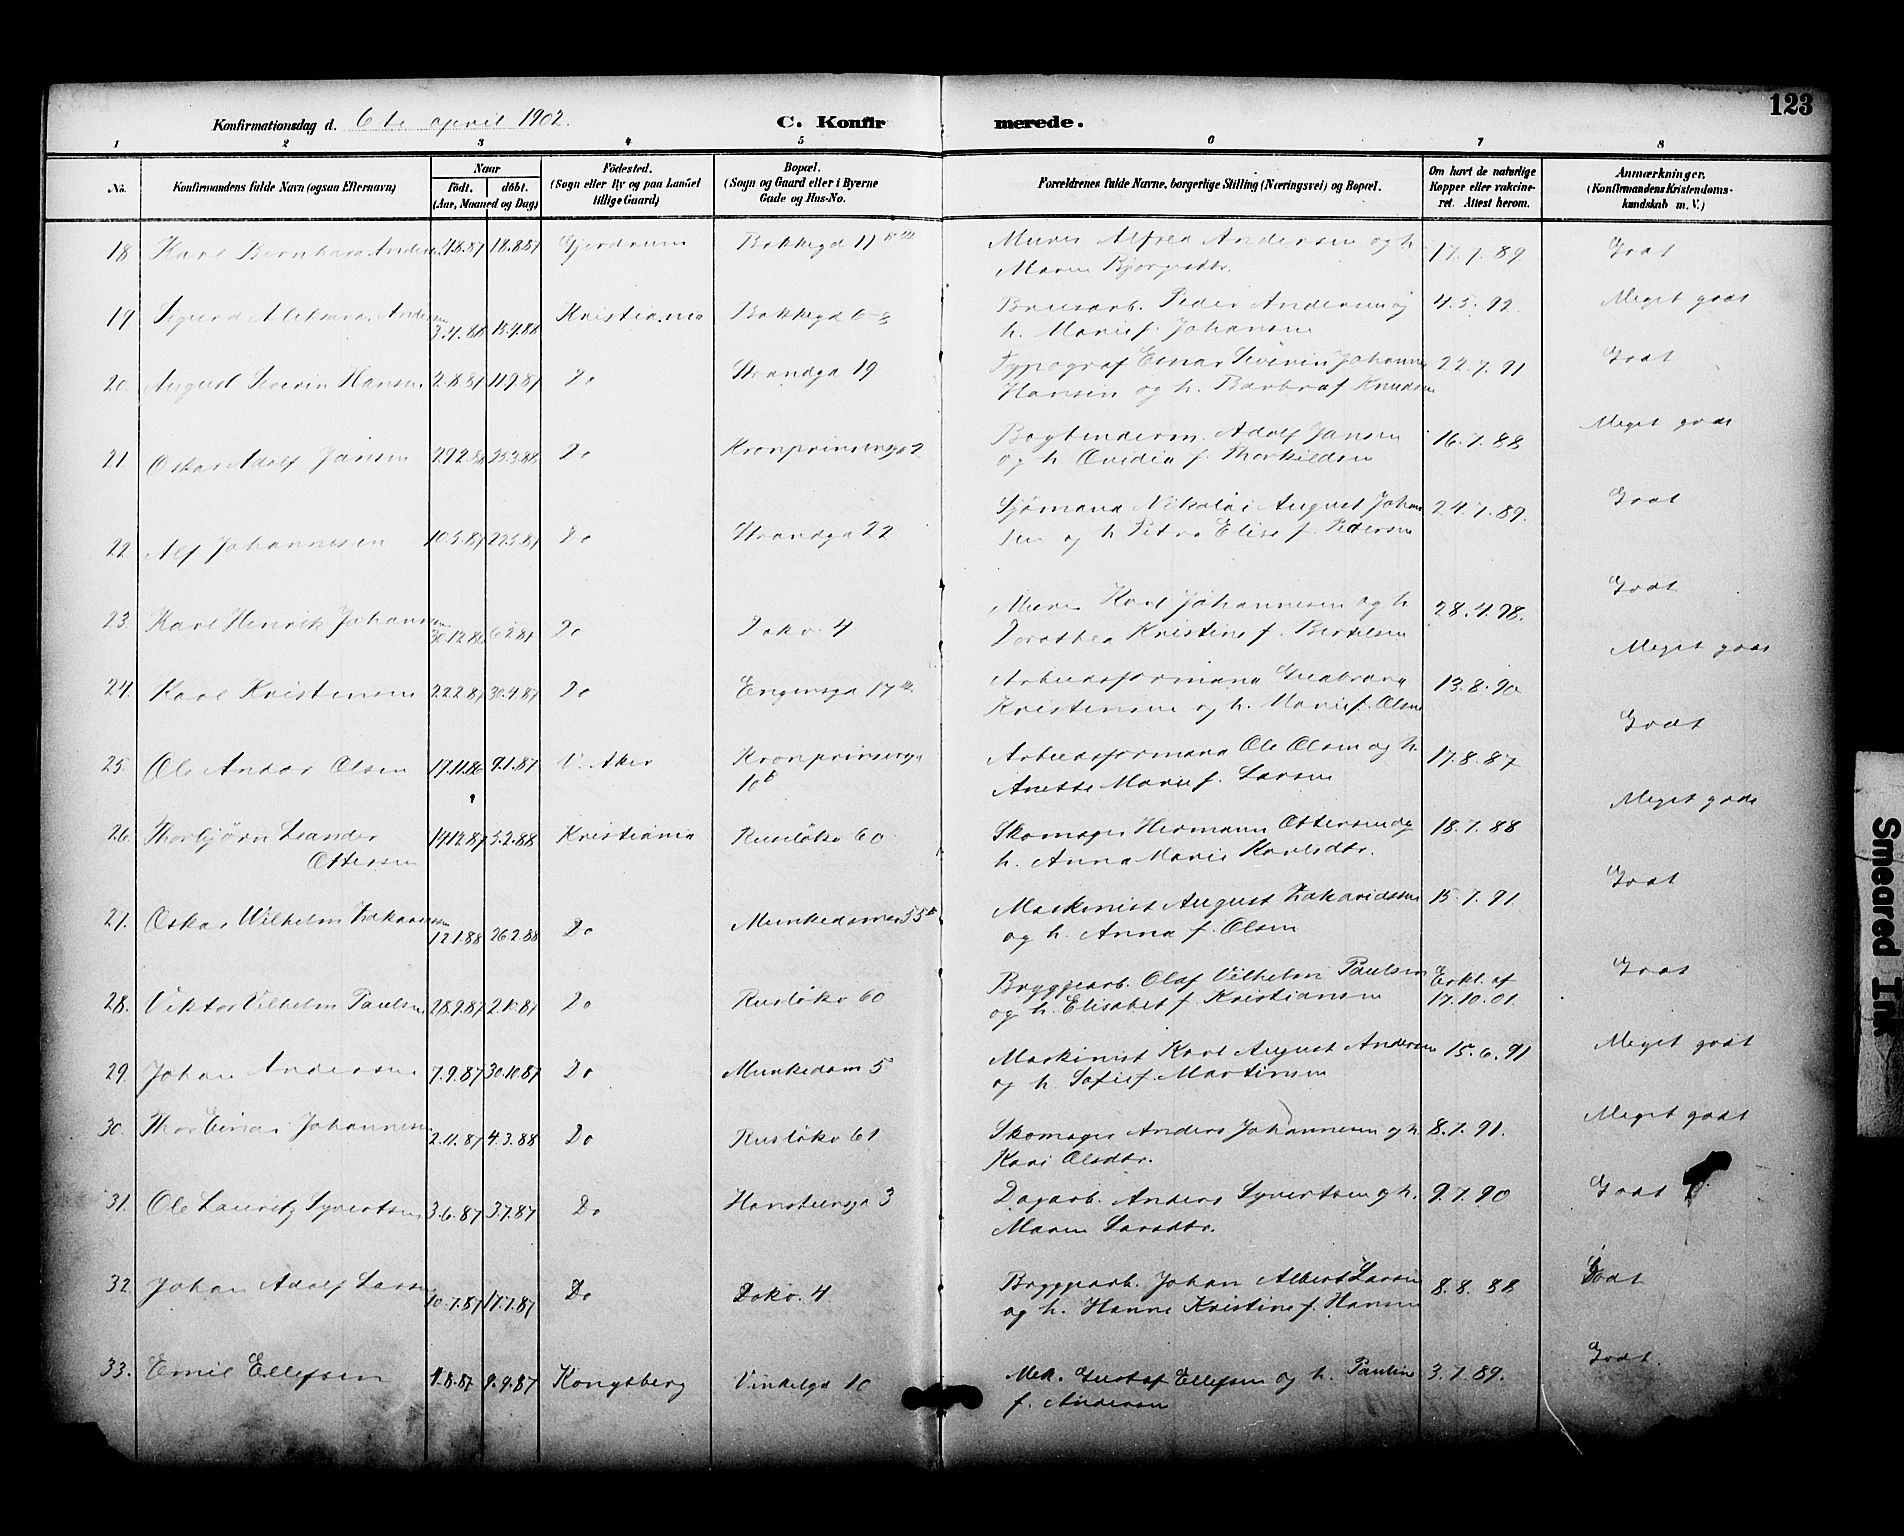 123
Konfirmationsdag d. 6te april 1902.
C. Konfirmerede.
1 2 3 4 5 6 7 8
No.
Konfirmandens fulde Navn (ogsaa Efternavn)
Naar
født. døbt.
(Aar, Maaned og Dag)
Fødested.
(Sogn eller By og paa Landet
tillige Gaard)
Bopæl.
(Sogn og Gaard eller i Byerne
Gade og Hus-No.
Forældrenes fulde Navne, borgerlige Stilling (Næringsvei) og Bopæl.
Om havt de naturlige
Kopper eller vakcine-
ret. Attest herom.
Anmærkninger.
(Konfirmandens Kristendoms-
kundskab m. V.)
18 Karl Bernhard Andersen 18.8.87 Gjerdrum Bakkegd 11 Murer Alfred Andersen og h. 17.7.89. Godt
Maren Bjørgsdtr.
19 Sigurd Andersen 3.4.88 15.4.88 Kristiania Bakkegd 6-8 Peder Andersen og 4.5.92. Meget godt
h. Marie f. Johansen
20. August Severin Hansen 2.8.87 11.9.87 Do Strandga 19 Typograf Einar Severin Johannes 22.7.91 Godt
Hansen og h. Barbra f. Knudsen
21 Oskar Adolf Jansen 29.2.88 25.3.88 Do Kronprinsensga 2 Bogbinderm. Adolf Jansen 16.7.88 Meget godt
og h. Ovedia f. Thorkildsen
22. Alf Johannesen 10.5.87 22.5.87 Do Strandga 22 Sjømand Nikolai August Johanne- 24.7.89. Godt
sen og h. Petra Elise f. Pedersen
23. Karl Henrik Johannesen 30.12.86 6.2.87 Do Dokv. 4 Murer Karl Johannesen og h. 28.4.98. Godt
Dorothea Kristine f. Bertelsen
24. Karl Kristensen 22.2.87 30.4.87 Do Engensga 17 Arbeidsformand Gudbrand 13.8.90 Meget godt
Kristensen og h. Marie f. Olsen
25. Ole Andor Olsen 17.11.86 9.1.87 V. Aker Kronprinsensga Arbeidsformand Ole Olsen og h. 17.8.87 Godt
10 B Anette Marie f. Larsen
26. Thorbjørn Leander 14.12.87 5.2.88 Kristiania Rusløkv 60 Skomager Hermann Ottersen og 18.7.88 Meget godt
Ottersen h. Anna Marie Karlsdtr.
27. Oskar Wilhelm Zakariassen 12.1.88 26.2.88 Do Munkedamsv 55 Maskinist August Zakariassen 15.7.91 Godt
og h. Anna f. Olsen
28. Viktor Vilhelm Paulsen 28.9.87 Do Rusløkv 60 Bryggearb. Olaf Vilhelm Paulsen Erkl. af Godt
og h. Elisabet f. Kristiansen 17.10.01.
29. Johan Andersen 7.9.87 30.10.87 Do Munkedam 5 Maskinist Karl August Andersen 15.6.91 Meget godt
og h. Sofie f. Martinsen
30. Thor Einar Johannesen 2.11.87 4.3.88 Do Rusløkv 61 Skomager Anders Johannesen og h. 8.7.91. Meget godt
Kari Olsdtr.
31. Ole Lauritz Syvertsen 3.6.87 3.7.87 Do Hansteensga 3 Dagarb. Anders Syvertsen og h. 9.7.90 Godt
Maren Larsdtr.
32 Johan Adolf Larsen 10.7.87 17.7.87 Do Dokv. 4 Bryggearb. Johan Albert Larsen 8.8.88 Godt
og h. Hanne Kristine f. Hansen
33. Emil Ellefsen 1.8.87 9.9.87 Kongsberg Vinkelgd 10 Mek. Gustaf Ellefsen og h. Pauline 3.7.89. Godt.
f. Andersen
Smeared Ink